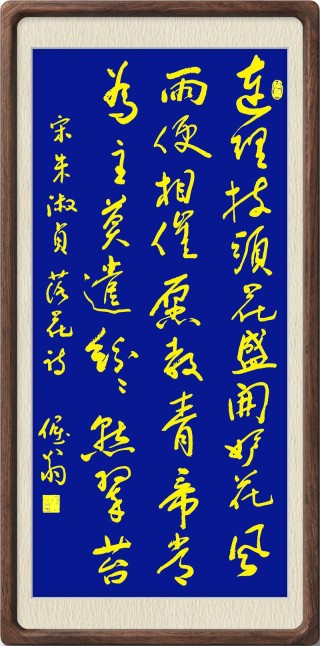 連理枝頭花盛開妒花風
雨便相催愿教青帝常
為主莫遣紛々點翠苔
宋朱淑貞落花诗 翁